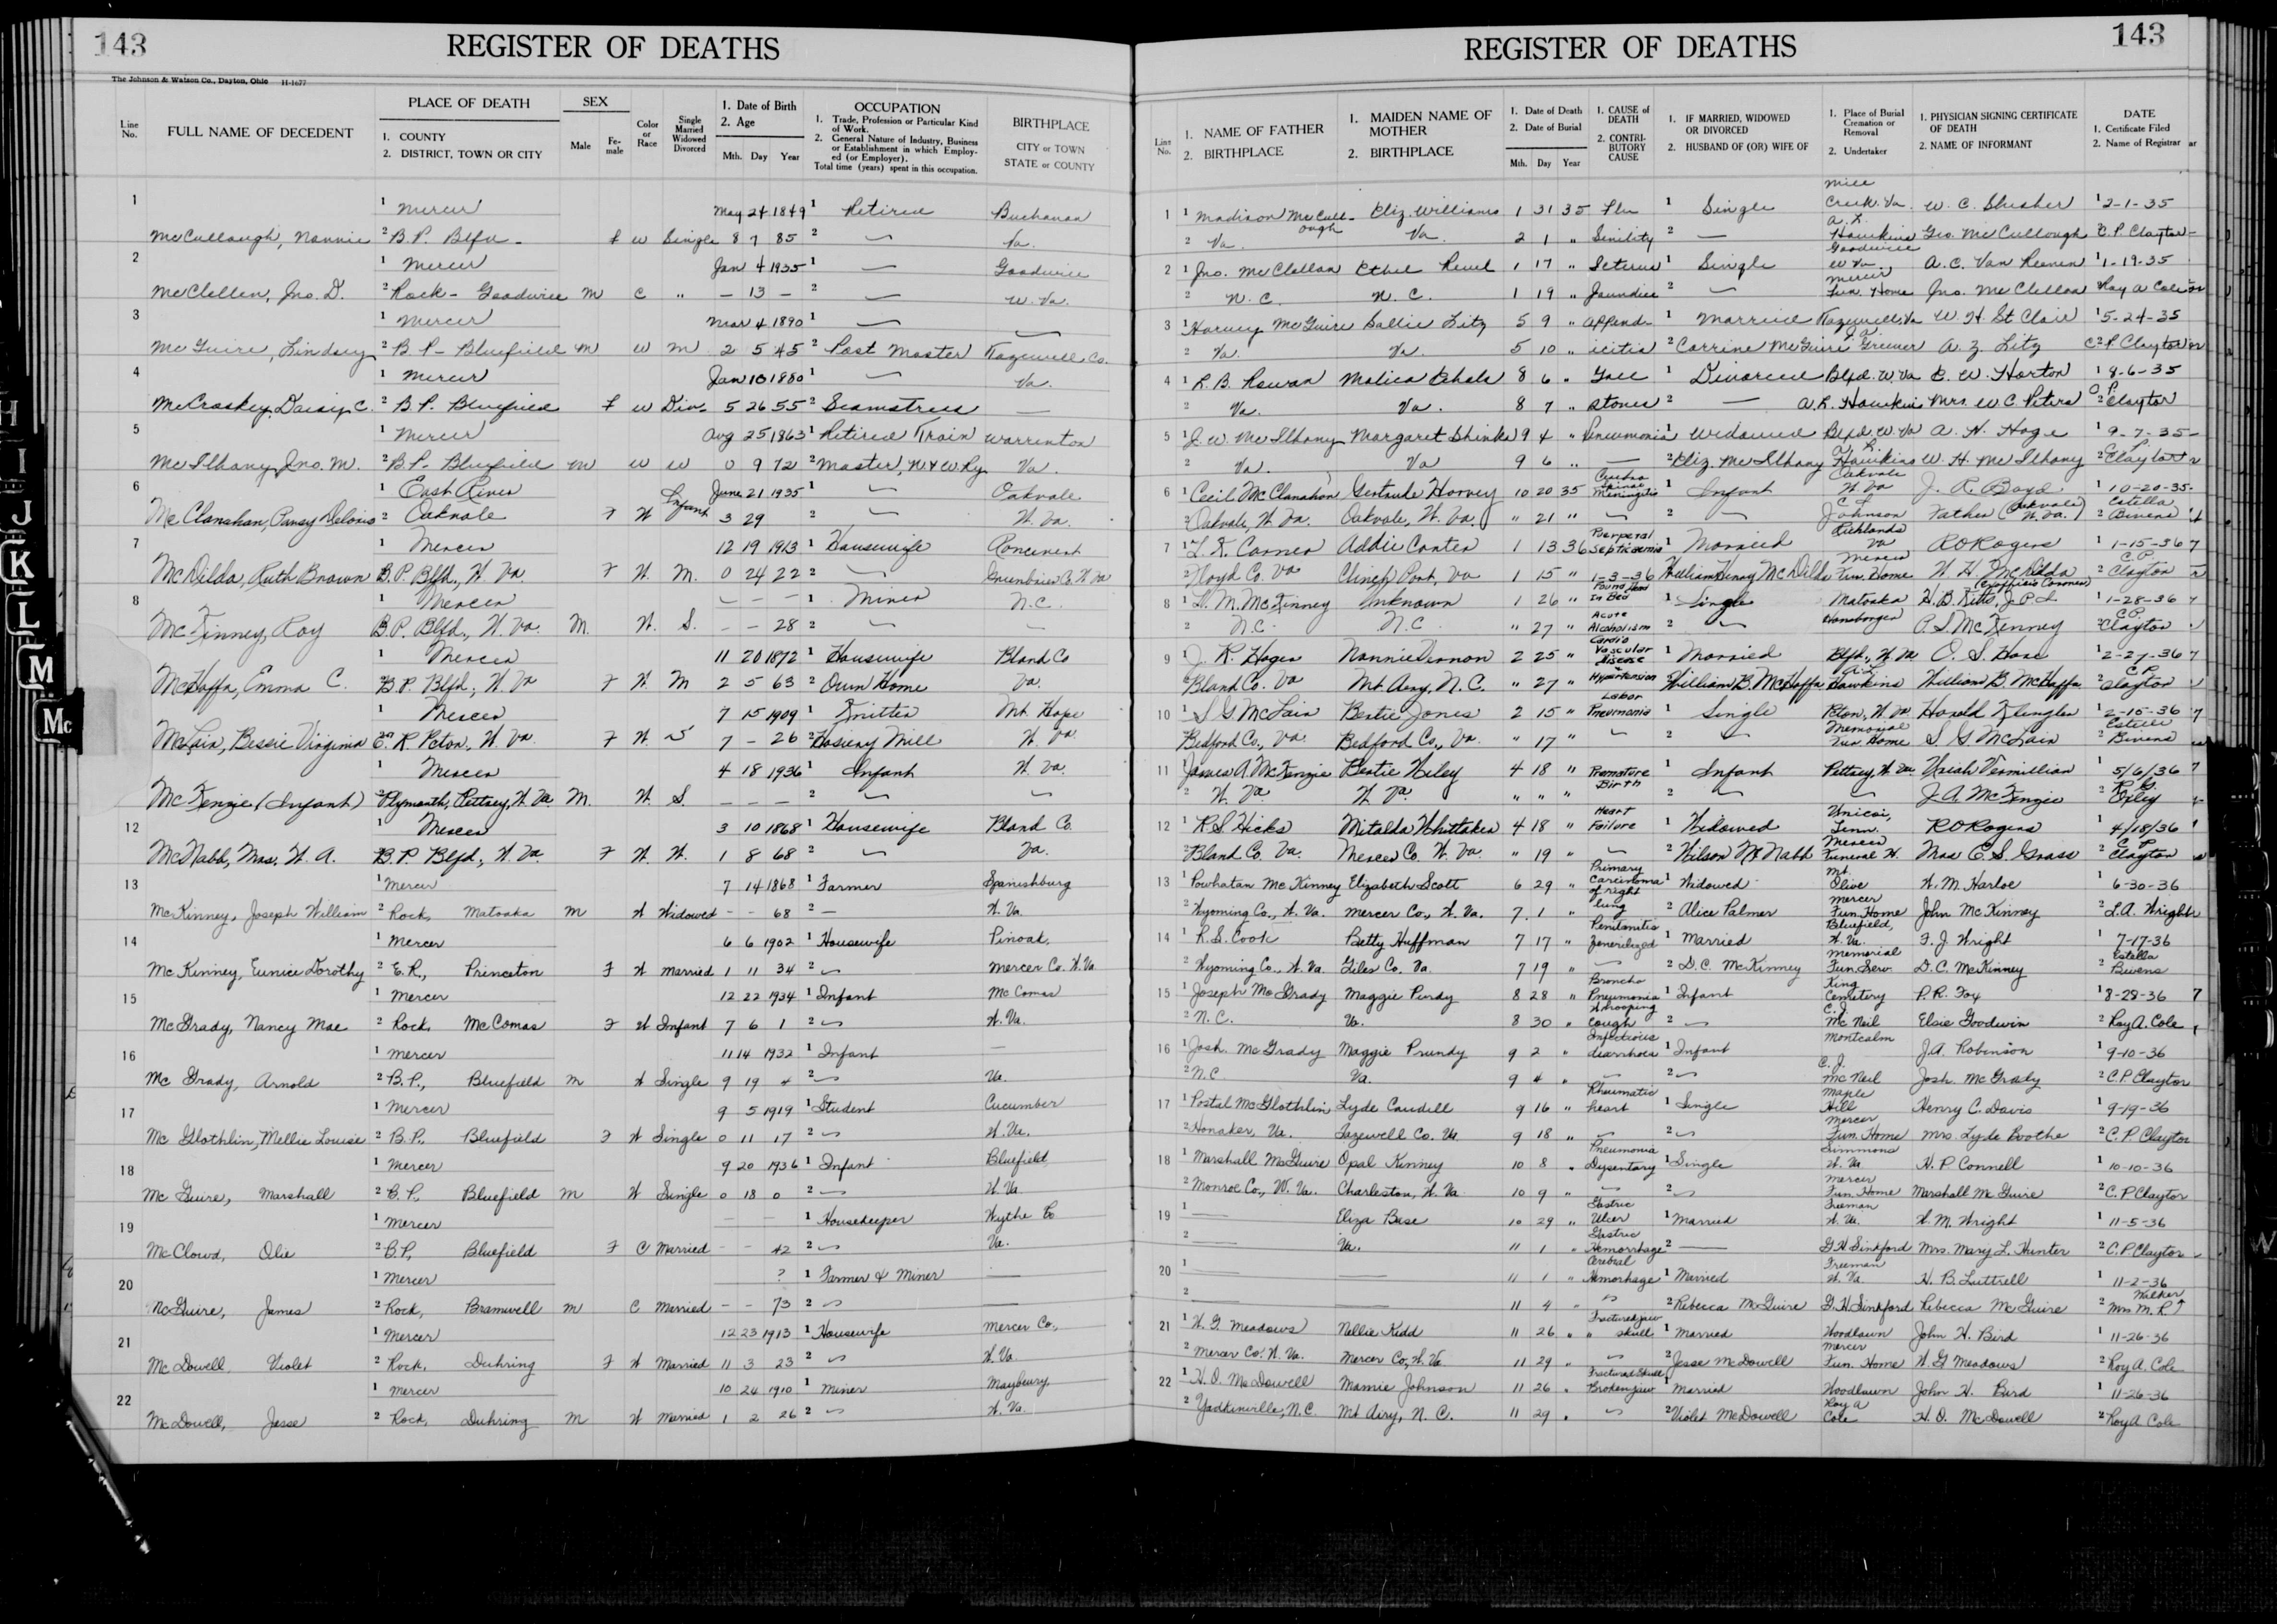 143
REGISTER OF DEATHS
The Johnson & Watson Co., Dayton, Ohio H-1677
Line No.
FULL NAME OF DECEDENT
PLACE OF DEATH
1. COUNTY
2. DISTRICT, TOWN OR CITY
SEX
Male
Fe-male
Color or Race
Single Married Widowed Divorced
1. Date of Birth
2. Age
Mth. Day Year
OCCUPATION
1. Trade, Profession or Particular Kind of Work.
2. General Nature of Industry, Business or Establishment in which Employed (or Employer).
Total time (years) spent in this occupation.
BIRTHPLACE
CITY or TOWN
STATE or COUNTY
1
1 Mercer May 24 1849 1 Retired Buchanan
McCullough, Nannie 2 B.P. Blfd - f w Single 8 7 85 2 Va.
2
1 Mercer Jan 4 1935 1 Goodwill
McClellen, Jno. D. 2 Rock - Goodwill m c " - 13 - 2 W. Va.
3
1 Mercer Mar 4 1890 1
McGuire, Lindsey 2 B P - Bluefield m w m 2 5 45 2 Post Master Tazewell Co.
4
1 Mercer Jan 10 1880 1 Va.
McCroskey, Daisy C. 2 B.P. Bluefield f w Div. 5 26 55 2 Seamstress
5
1 Mercer Aug 25 1863 1 Retired Train Warrenton
McIlhany, Jno. M. 2 B.P - Bluefield m w w 0 9 72 2 Master, N & W. Ry. Va.
6
1 East River Infant June 21 1935 1 Oakvale
McClanahan, Pansy Deloris 2 Oakvale F W 3 29 2 W. Va.
7
1 Mercer 12 19 1913 1 Housewife Ronceverte
McDilda, Ruth Brown B.P. Blfd., W. Va. F W. M. 0 24 22 2 Greenbrier Co. W. Va
8
1 Mercer - - - 1 Miner N.C.
McKinney, Roy B.P. Blfd., W. Va. M. W. S. - - 28 2
1 Mercer 11 20 1872 1 Housewife Bland Co
McHaffa, Emma C. B.P. Blfd., W. Va F W. M 2 5 63 2 Own Home Va.
1 Mercer 7 15 1909 1 Knitter Mt. Hope
McLain, Bessie Virginia E. R. Pcton, W. Va. F W. S 7 - 26 2 Hosiery Mill W. Va.
1 Mercer 4 18 1936 1 Infant W. Va.
McKenzie (Infant) 2 Plymouth, Pettrey, W. Va M. W. S. - - - 2
12
1 Mercer 3 10 1868 1 Housewife Bland Co.
McNabb, Mrs. W. A. B.P. Blfd., W. Va. F W. W. 1 8 68 2 Va.
13
1 Mercer 7 14 1868 1 Farmer Spanishburg
McKinney, Joseph William 2 Rock, Matoaka m W Widowed - - 68 2 - W. Va.
14
1 Mercer 6 6 1902 1 Housewife Pinoak,
McKinney, Eunice Dorothy 2 E.R., Princeton F W married 1 11 34 2 Mercer Co. W. Va
15
1 Mercer 12 22 1934 1 Infant McComas
McGrady, Nancy Mae 2 Rock, McComas F W Infant 7 6 1 2 W. Va.
16
1 Mercer 11 14 1932 1 Infant -
McGrady, Arnold 2 B.P., Bluefield m W Single 9 19 4 2 Va.
17
1 Mercer 9 5 1919 1 Student Cucumber
McGlothlin, Mellie Louise 2 B.P., Bluefield F W Single 0 11 17 2 W. Va.
18
1 Mercer 9 20 1936 1 Infant Bluefield
McGuire, Marshall 2 B.P., Bluefield m W Single 0 18 0 2 W. Va
19
1 Mercer - - 1 Housekeeper Wythe Co
McClowd, Olie 2 B.P, Bluefield F C Married - - 42 2 Va.
20
1 Mercer ? 1 Farmer & Miner
McGuire, James 2 Rock, Bramwell m C Married - - 73 2
21
1 Mercer 12 23 1913 1 Housewife Mercer Co.,
McDowell, Violet 2 Rock, Duhring F W Married 11 3 23 2 W. Va.
22
1 Mercer 10 24 1910 1 Miner Maybeury,
McDowell, Jesse 2 Rock, Duhring m W Married 1 2 26 2 W. Va.
H
I
J
K
L
M
Mc
REGISTER OF DEATHS
143
Line No.
1. NAME OF FATHER
2. BIRTHPLACE
1. MAIDEN NAME OF MOTHER
2. BIRTHPLACE
1. Date of Death
2. Date of Burial
Mth. Day Year
1. CAUSE of DEATH
2. CONTRIBUTORY CAUSE
1. IF MARRIED, WIDOWED OR DIVORCED
2. HUSBAND OF (OR) WIFE OF
1. Place of Burial Cremation or Removal
2. Undertaker
1. PHYSICIAN SIGNING CERTIFICATE OF DEATH
2. NAME OF INFORMANT
DATE
1. Certificate Filed
2. Name of Registrar
1 1 Madison McCullough Eliz. Williams 1 31 35 Flu 1 Single Mill Creek. Va. W. C. Slusher 1 2-1-35
2 Va. Va. 2 1 " Senility 2 - Hawkins Geo. McCullough C. P. Clayton
2 1 Jno. McClellan Ethel 1 17 " Icterus 1 Single Goodwill W Va A. C. Van Reenen 1 1-19-35
2 N. C. N. C. 1 19 " Jaundice 2 Mercer Fun. Home Jno. McClellan Roy A Cole
3 1 Harvey McGuire Sallie Litz 5 9 " Append- 1 Married Tazewell, Va W. H. St Clair 1 5-24-35
2 Va. Va. 5 10 " icitis 2 Corrine McGuire Greever A. Z. Litz C P Clayton
4 1 L. B. Rowan 8 6 " Gall 1 Divorced Blfd. W. Va E. W. Horton 1 8-6-35
2 Va. Va. 8 7 " stones 2 - A. L. Hawkins Mrs. W. C. Peters C P Clayton
5 1 J. W. McIlhany Margaret Shinks 9 4 " Pneumonia 1 Widowed Blfd. W. Va A. H. Hoge 1 9-7-35-
2 Va. Va 9 6 " - 2 Eliz. McIlhany Hawkins W. H. McIlhany 2 Clayton
6 1 Cecil McClanahan Gertrude Harvey 10 20 35 Cerebro Spinal Meningitis 1 Infant Oakvale W. Va J. R. Boyd. 1 10-20-35.
2 Oakvale, W. Va. Oakvale, W. Va. " 21 " 2 C. L Johnson Father (Oakvale W. Va.) Estella 2 Bivens
7 1 L. K. Carner Addie Carter 1 13 36 Perperal Septicaemia 1 Married Richlands Va R O Rogers 1 1-15-36
2 Floyd Co. Va Clinch Port, Va 1 15 " 1-3-36 William Henry McDilda Mercer Fun. Home W. H. McDilda C.P. 2 Clayton
8 1 W. M. McKinney Unknown 1 26 " Found Dead In Bed 1 Single Matoaka H. B. Kitts, J.P. 1 1-28-36
2 N.C. N.C. " 27 " Acute Alcoholism 2 P. S. McKenney C.P. 2 Clayton
9 1 J. R. Hager Nannie Vernon 2 25 " Cardio Vascular disease 1 Married Blfd., W. Va O. S. Hare 1 2-27-36
2 Bland Co. Va Mt. Airy, N. C. " 27 " Hypertension William B. McHaffa A.L. Hawkins William B. McHaffa C.P. Clayton
10 1 S G McLain Bertie Jones 2 15 " Lobar Pneumonia 1 Single Pcton, W. Va Harold Klingler 1 2-15-36
Bedford Co., Va. Bedford Co., Va. " 17 " 2 Memorial Fun Home S. G. McLain Estelle 2 Bivens
11 James A. McKenzie Beatie Wiley 4 18 " Premature Birth 1 Infant Pettrey, W. Va. Uriah Vermillian 1 5/6/36
2 W. Va. W. Va. " " " 2 J. A. McKenzie 2 R. G. Oxley
12 1 R. S. Hicks Mitalda Whittaker 4 18 " Heart Failure 1 Widowed Unicoi, Tenn. R O Rogers 1 4/18/36
2 Bland Co. Va. Mercer Co. W. Va. " 19 " 2 Wilson McNabb Mercer Funeral H. Mrs C. S. Grass 2 C P Clayton
13 1 Powhatan McKinney Elizabeth Scott 6 29 " Primary Carcinoma of right lung 1 Widowed Mt. Olive W. M. Harloe 1 6-30-36
2 Wyoming Co., W. Va. Mercer Co., W. Va. 7. 1 " 2 Alice Palmer Mercer Fun. Home John McKinney 2 L.A. Wright
14 1 R. S. Cook Betty Huffman 7 17 " Penitonitis Generalized 1 Married Bluefield, W. Va. F. J. Wright 1 7-17-36
2 Wyoming Co., W. Va. Giles Co. Va. 7 19 " 2 D. C. McKinney Memorial Fun. Serv. D. C. McKinney Estella 2 Bivens
15 1 Joseph McGrady Maggie Purdy 8 28 " Broncho Pneumonia 1 Infant King Cemetery P. R. Fox 1 8-28-36
2 N. C. Va. 8 30 " Whooping cough 2 C. J. McNeil Elsie Goodwin 2 Roy A. Cole
16 1 Josh. McGrady Maggie Prundy 9 2 " Infectious diarrhoea 1 Infant Montcalm J.A. Robinson 1 9-10-36
2 N.C Va. 9 4 " 2 C. J. McNeil Josh. McGrady 2 C.P. Clayton
17 1 Postal McGlothlin Lyde Caudill 9 16 " Rheumatic heart 1 Single Maple Hill Henry C. Davis 1 9-19-36
2 Honaker, Va. Tazewell Co. Va. 9 18 " 2 Mercer Fun. Home Mrs. Lyde Boothe 2 C. P. Clayton
18 1 Marshall McGuire Opal Kinney 10 8 " Pneumonia Dysentary 1 Single Simmons W. Va. H. P Connell 1 10-10-36
2 Monroe Co., W. Va. Charleston, W. Va. 10 9 " 2 Mercer Fun. Home Marshall McGuire 2 C. P Clayton
19 1 Eliza Base 10 29 " Gastric Ulcer 1 Married Freeman W. Va. W. M. Wright 1 11-5-36
2 Va. 11 1 " Gastric Hemorrhage 2 G H Sinkford Mrs. Mary L. Hunter 2 C. P. Clayton
20 1 11 1 " Cerebral Hemorhage 1 Married Freeman W. Va. H. B. Luttrell 1 11-2-36
2 11 4 " 2 Rebecca McGuire G. H Sinkford Rebecca McGuire Walker 2 Mrs M. R
21 1 W. G. Meadows Nellie Kidd 11 26 " Fractured jaw " skull 1 Married Woodlawn John H. Bird 1 11-26-36
2 Mercer Co. W. Va. Mercer Co, W. Va. 11 29 " 2 Jesse McDowell Mercer Fun. Home W. G Meadows 2 Roy A. Cole
22 1 H. O. McDowell Mamie Johnson 11 26 " Fractured Skull Broken jaw 1 Married Woodlawn John H. Bird 1 11-26-36
2 Yadkinville, N.C. Mt Airy, N. C. 11 29 " 2 Violet McDowell Roy A Cole H. O. McDowell 2 Roy A Cole